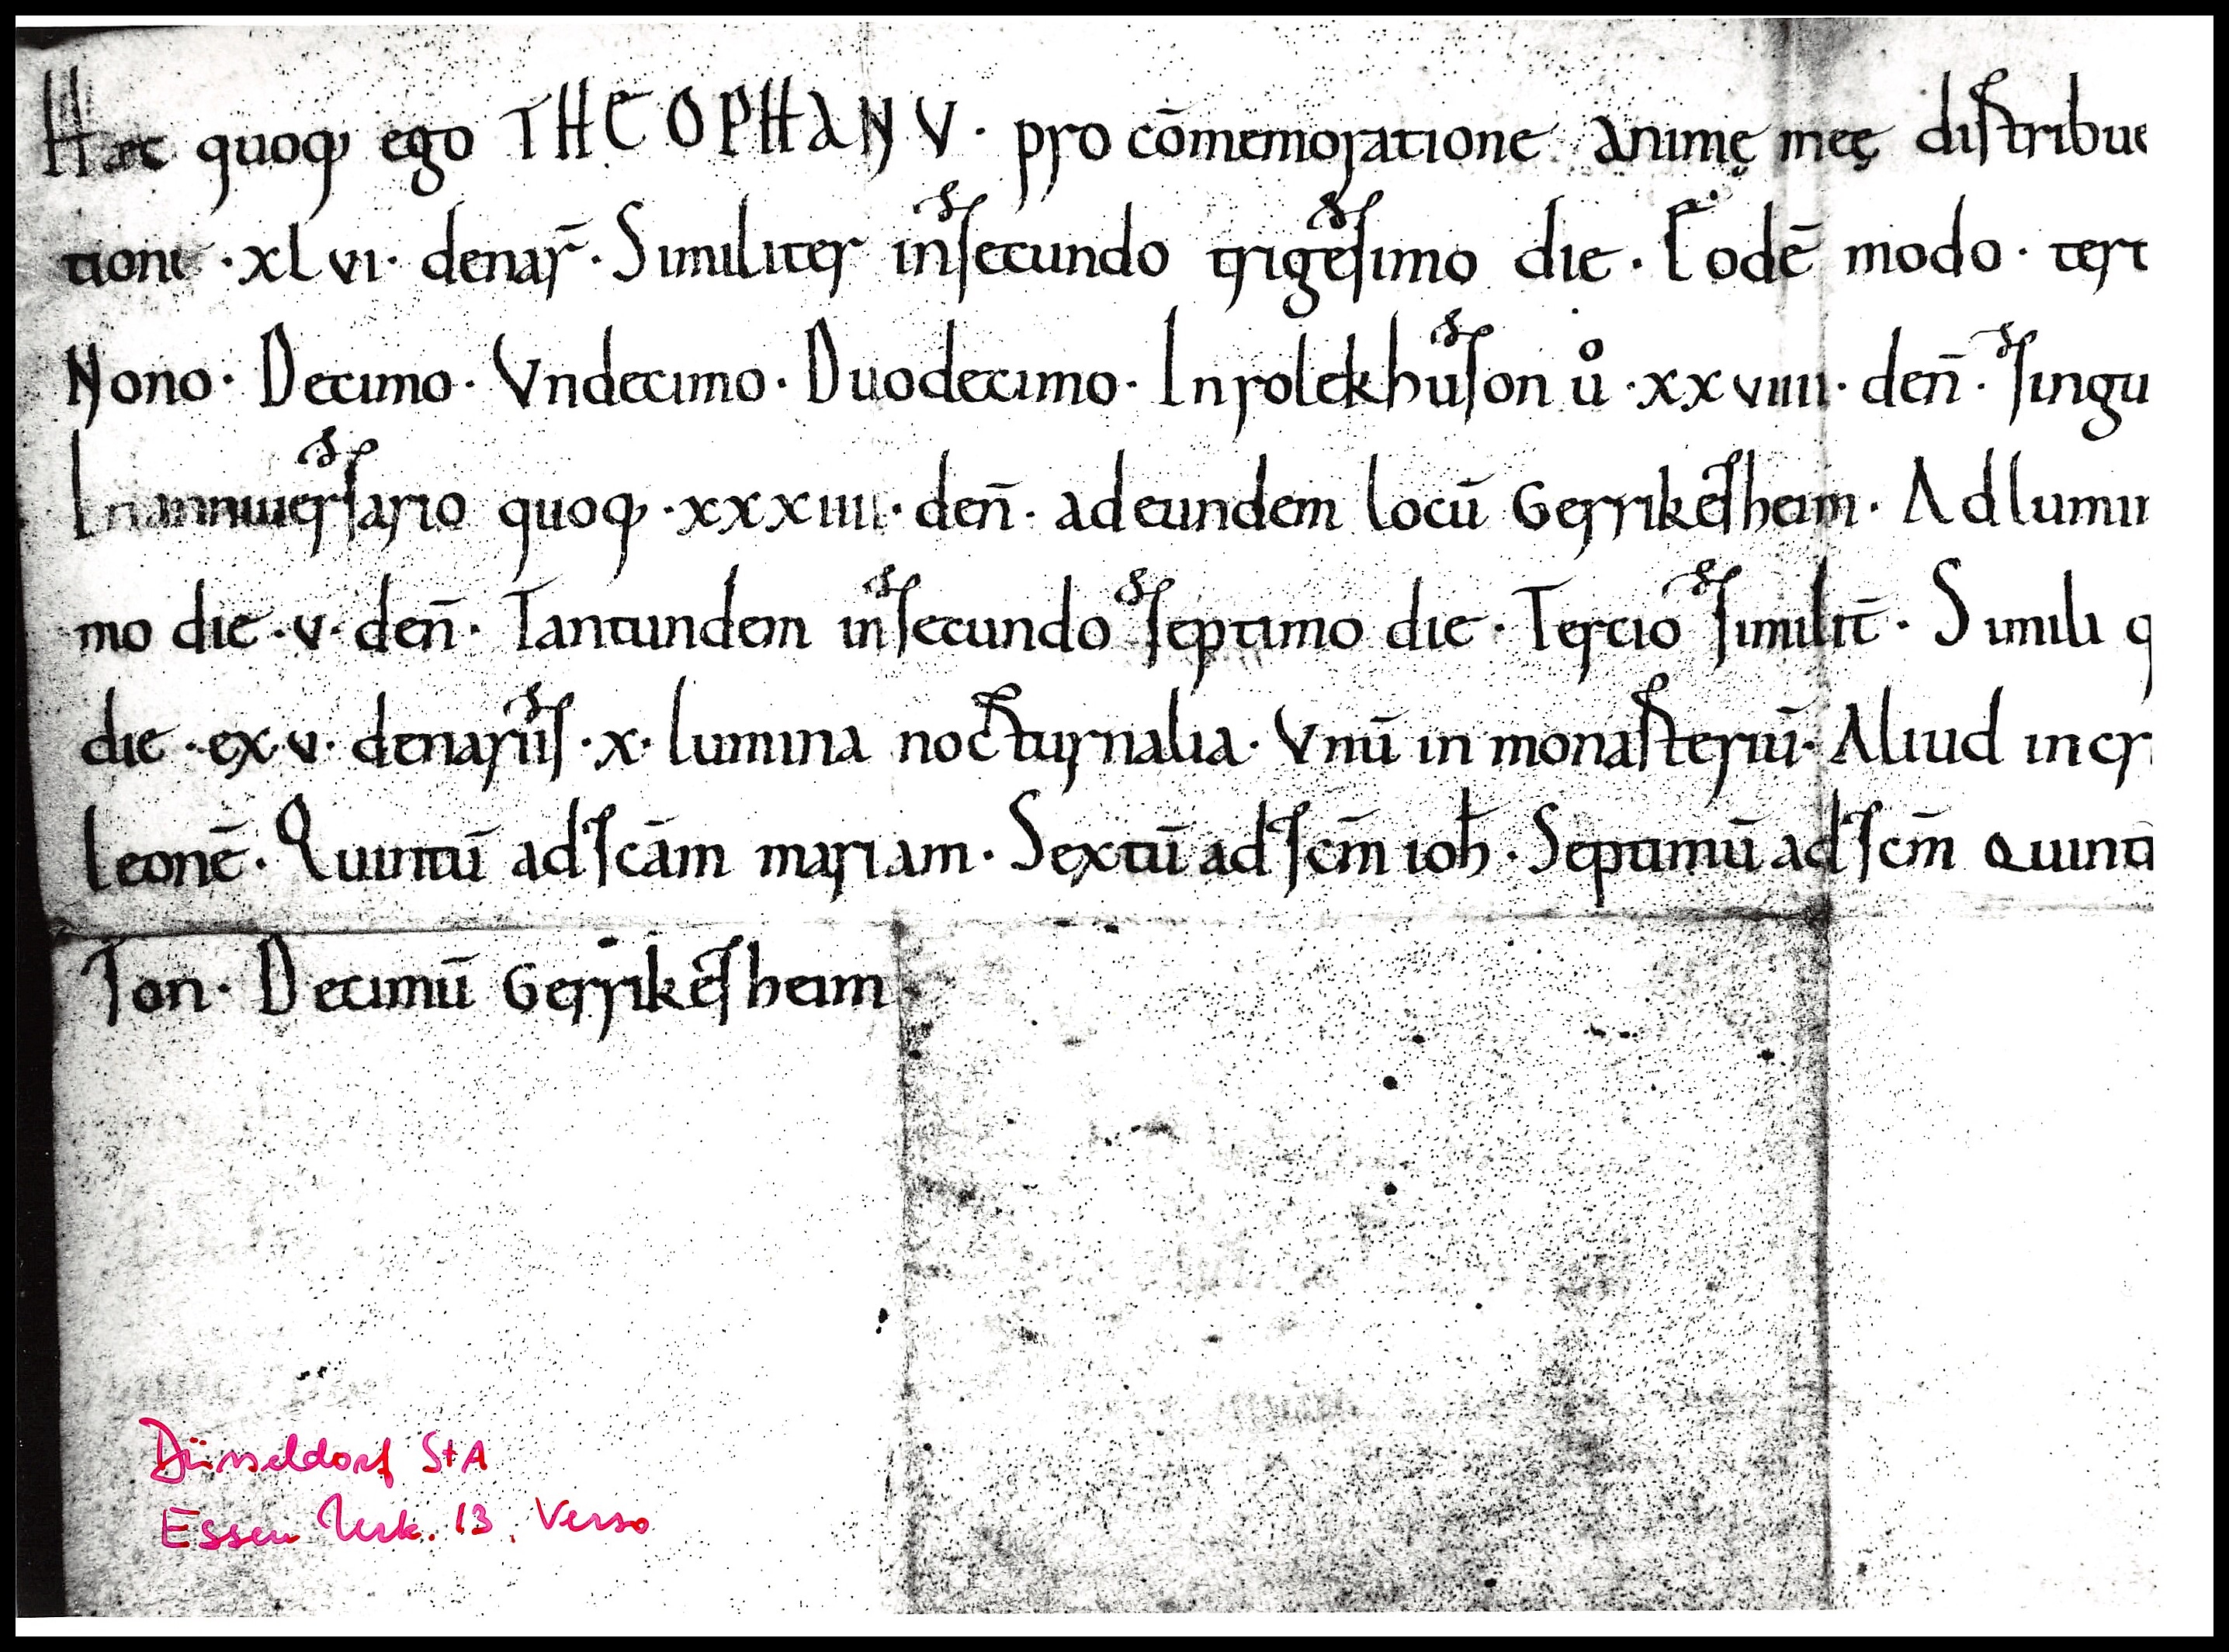 Haec quoq; ego THEOPHANV · pro cōmemoratione animę meę distribue
tioni · xlvi · denar̄ · Similiter insecundo trigesimo die · Eodē modo · terc
Nono · Decimo · Vndecimo · Duodecimo · Inrolekhuson ů · xxviiii · den̄ · singu
Inanniuersario quoq; · xxxiiii · den̄ · adeundem locū Gerrikesheim · Adlumin
mo die · v · den̄ · Tantundem insecundo septimo die · Tercio similit̄ · Simili q
die · ex · v · denariis · x · lumina nocturnalia · Vnū in monasteriū · Aliud incr
leonē · Quintū adscām mariam · Sextū adscm̄ ioh̄ · Septimū adscm̄ Quinti
son · Decimū Gerrikesheim
Düsseldorf StA
Essen Urk. 13. Verso